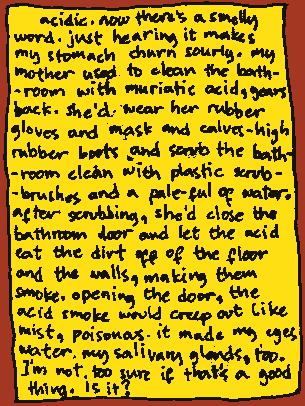 acidic. now there's a smelly
word. just hearing it makes
my stomach churn sourly. my
mother used to clean the bath-
-room with muriatic acid, years
back. she'd wear her rubber
gloves and mask and calves-high
rubber boots and scrub the bath-
-room clean with plastic scrub-
-brushes and a pale-ful of water.
after scrubbing, she'd close the
bathroom door and let the acid
eat the dirt off of the floor
and the walls, making them
smoke. opening the door, the
acid smoke would creep out like
mist, poisonous. it made my eyes
water. my salivary glands, too.
I'm not too sure if that's a good
thing. Is it?